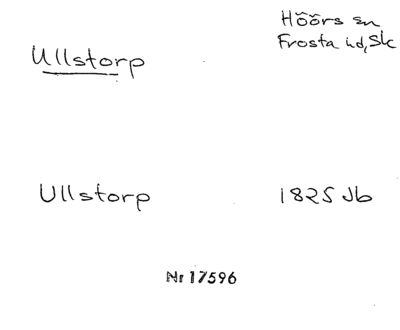 Höörs sn
Frosta hd, Sk
Ullstorp
Ullstorp 1825 Jb
Nr 17596